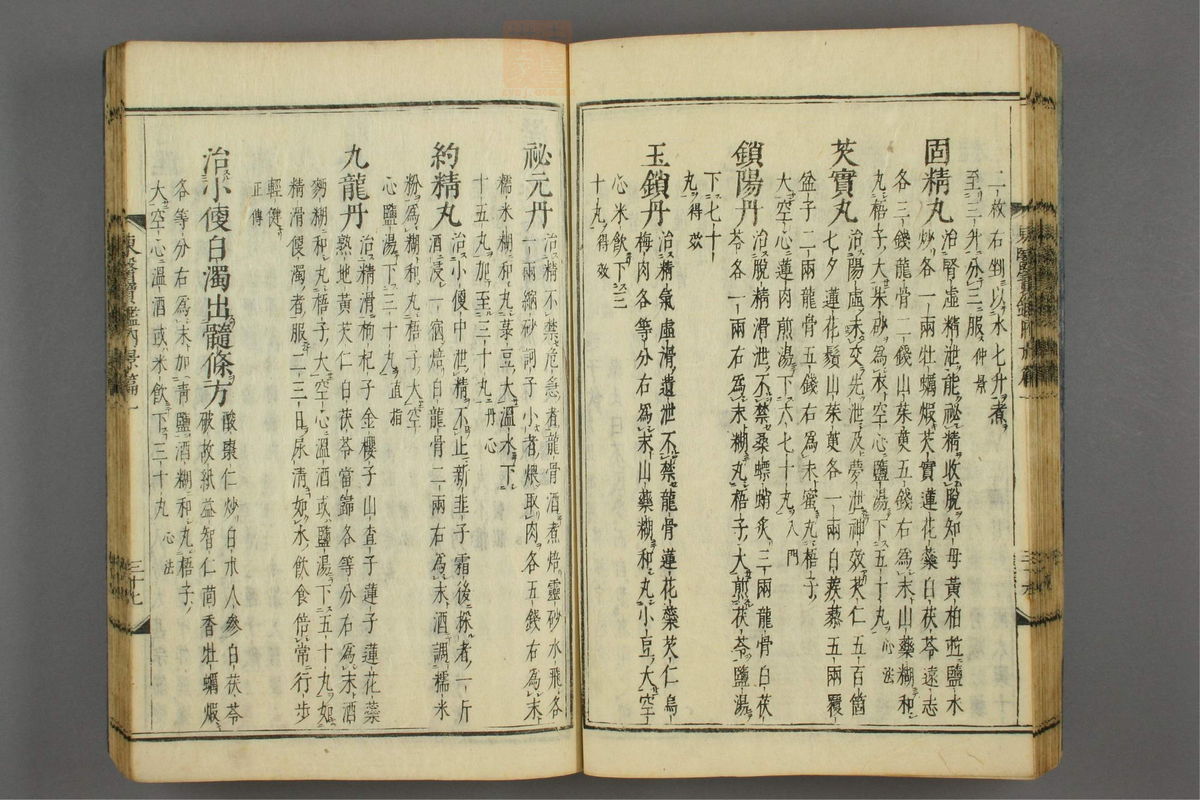 二枚右剉以水七升煮
至三升分三服仲景
固精丸治腎虛精泄能祕精收脫知母黃柏並鹽水
炒各一兩牡蠣煆芡實蓮花蘂白茯苓遠志
各三錢龍骨二錢山茱萸五錢右爲末山藥糊和
丸梧子大朱砂爲衣空心鹽湯下五十丸心法
芡實丸治陽虛未交先泄及夢泄神效芡仁五百箇
七夕蓮花鬚山茱萸各一兩白蒺藜五兩覆
盆子二兩龍骨五錢右爲末蜜丸梧子
大空心蓮肉煎湯下六七十丸入門
鎖陽丹治脫精滑泄不禁桑螵蛸炙三兩龍骨白茯
苓各一兩右爲末糊丸梧子大煎茯苓鹽湯
下七十
丸得效
玉鎖丹治精氣虛滑遺泄不禁龍骨蓮花蘂芡仁烏
梅肉各等分右爲末山藥糊和丸小豆大空
心米飮下三
十丸得效
祕元丹治精不禁危急者龍骨酒煮焙靈砂水飛各
一兩縮砂訶子小者煨取肉各五錢右爲末
糯米糊和丸菉豆大溫水下
十五丸加至三十丸丹心
約精丸治小便中泄精不止新韭子霜後採者一斤
酒浸一宿焙白龍骨二兩右爲末酒調糯米
粉爲糊和丸梧子大空
心鹽湯下三十丸直指
九龍丹治精滑枸杞子金櫻子山査子蓮子蓮花蘂
熟地黃芡仁白茯苓當歸各等分右爲末酒
麪糊和丸梧子大空心溫酒或鹽湯下五十丸如
精滑便濁者服二三日尿淸如水飮食倍常行步
輕健
正傳
治小便白濁出髓條方酸棗仁炒白朮人參白茯苓
破故紙益智仁茴香牡蠣煆
各等分右爲末加靑鹽酒糊和丸梧子
大空心溫酒或米飮下三十丸心法
東醫寶鑑內景篇一
三十七